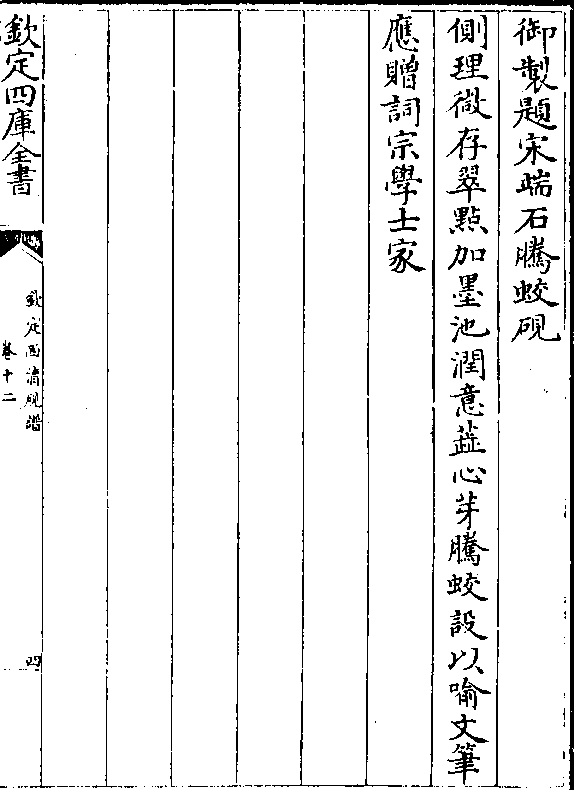 御製題宋端石騰蛟硯
側理微存翠點加墨池潤意蕋心芽騰蛟設以喻文筆
應贈詞宗學士家
欽定四庫全書
欽定西清硯譜
卷十二
四